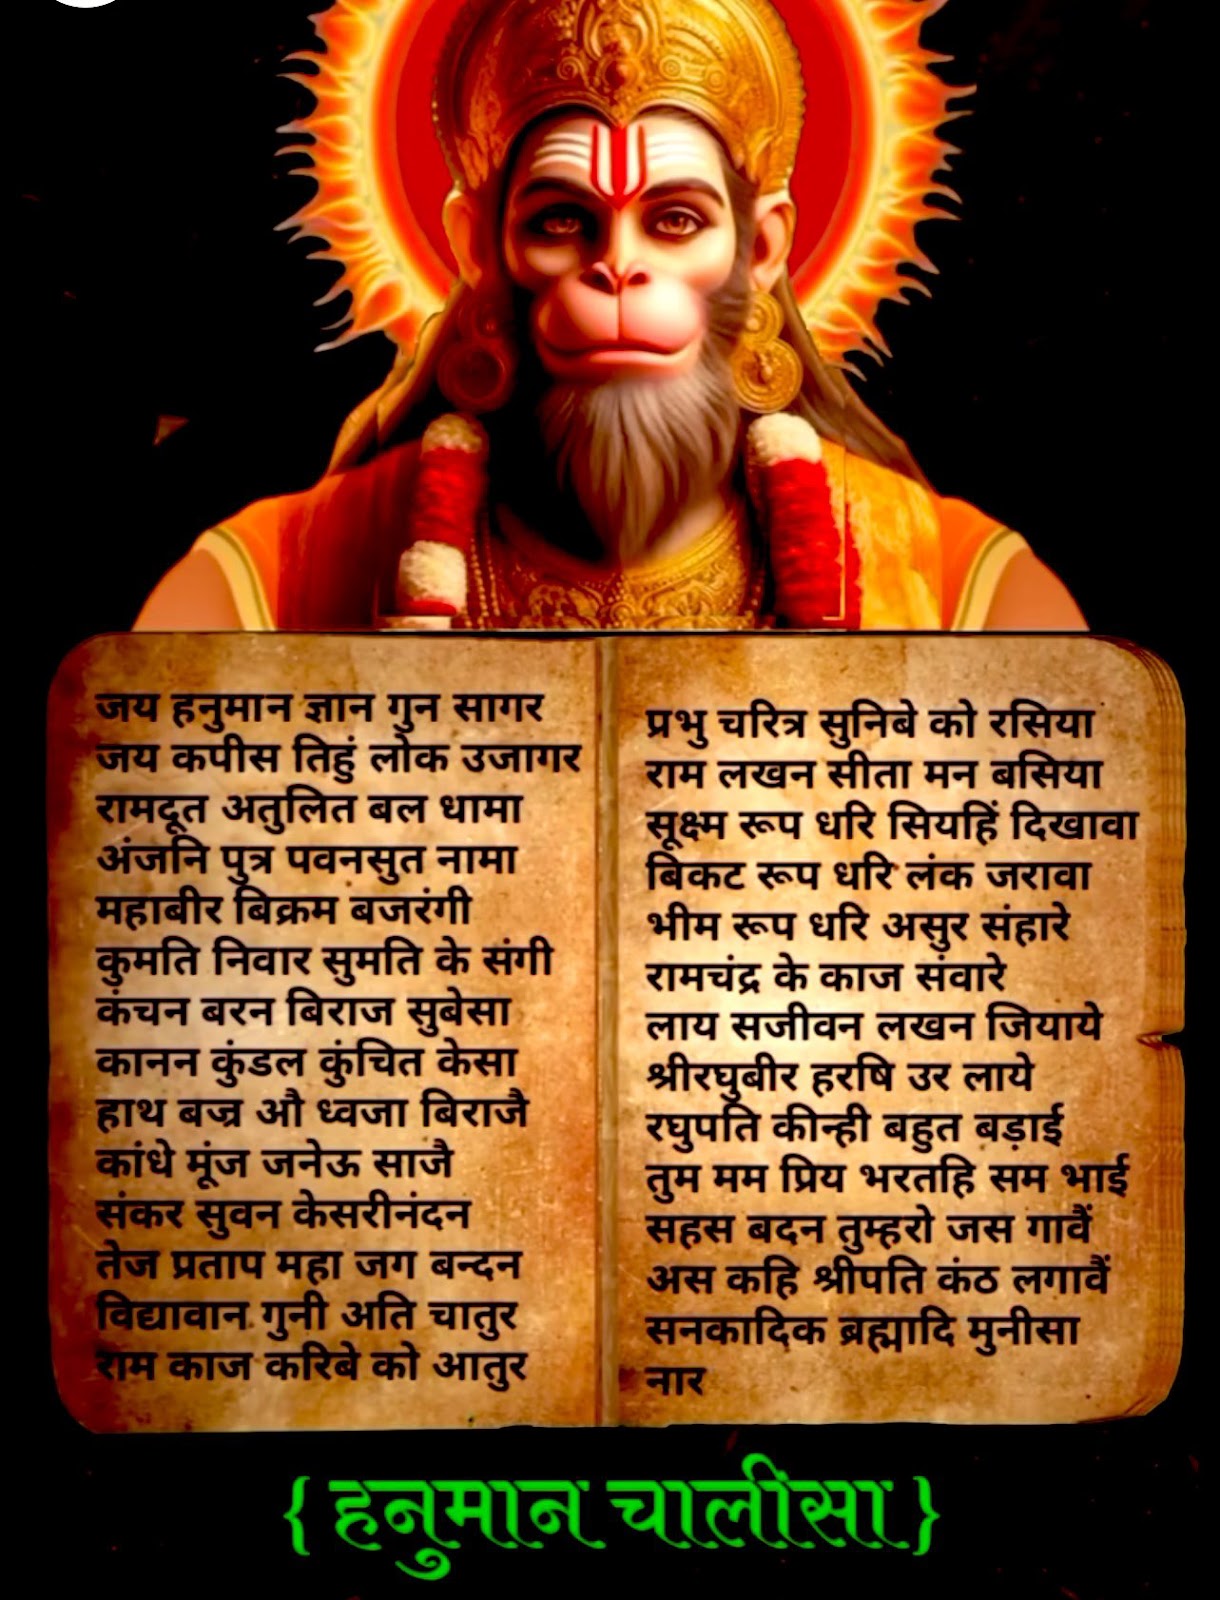 जय हनुमान ज्ञान गुन सागर
जय कपीस तिहुं लोक उजागर
रामदूत अतुलित बल धामा
अंजनि पुत्र पवनसुत नामा
महाबीर बिक्रम बजरंगी
कुमति निवार सुमति के संगी
कंचन बरन बिराज सुबेसा
कानन कुंडल कुंचित केसा
हाथ बज्र औ ध्वजा बिराजै
कांधे मूंज जनेऊ साजै
संकर सुवन केसरीनंदन
तेज प्रताप महा जग बन्दन
विद्यावान गुनी अति चातुर
राम काज करिबे को आतुर
प्रभु चरित्र सुनिबे को रसिया
राम लखन सीता मन बसिया
सूक्ष्म रूप धरि सियहिं दिखावा
बिकट रूप धरि लंक जरावा
भीम रूप धरि असुर संहारे
रामचंद्र के काज संवारे
लाय सजीवन लखन जियाये
श्रीरघुबीर हरषि उर लाये
रघुपति कीन्ही बहुत बड़ाई
तुम मम प्रिय भरतहि सम भाई
सहस बदन तुम्हरो जस गावैं
अस कहि श्रीपति कंठ लगावैं
सनकादिक ब्रह्मादि मुनीसा
नार
{ हनुमान चालीसा }